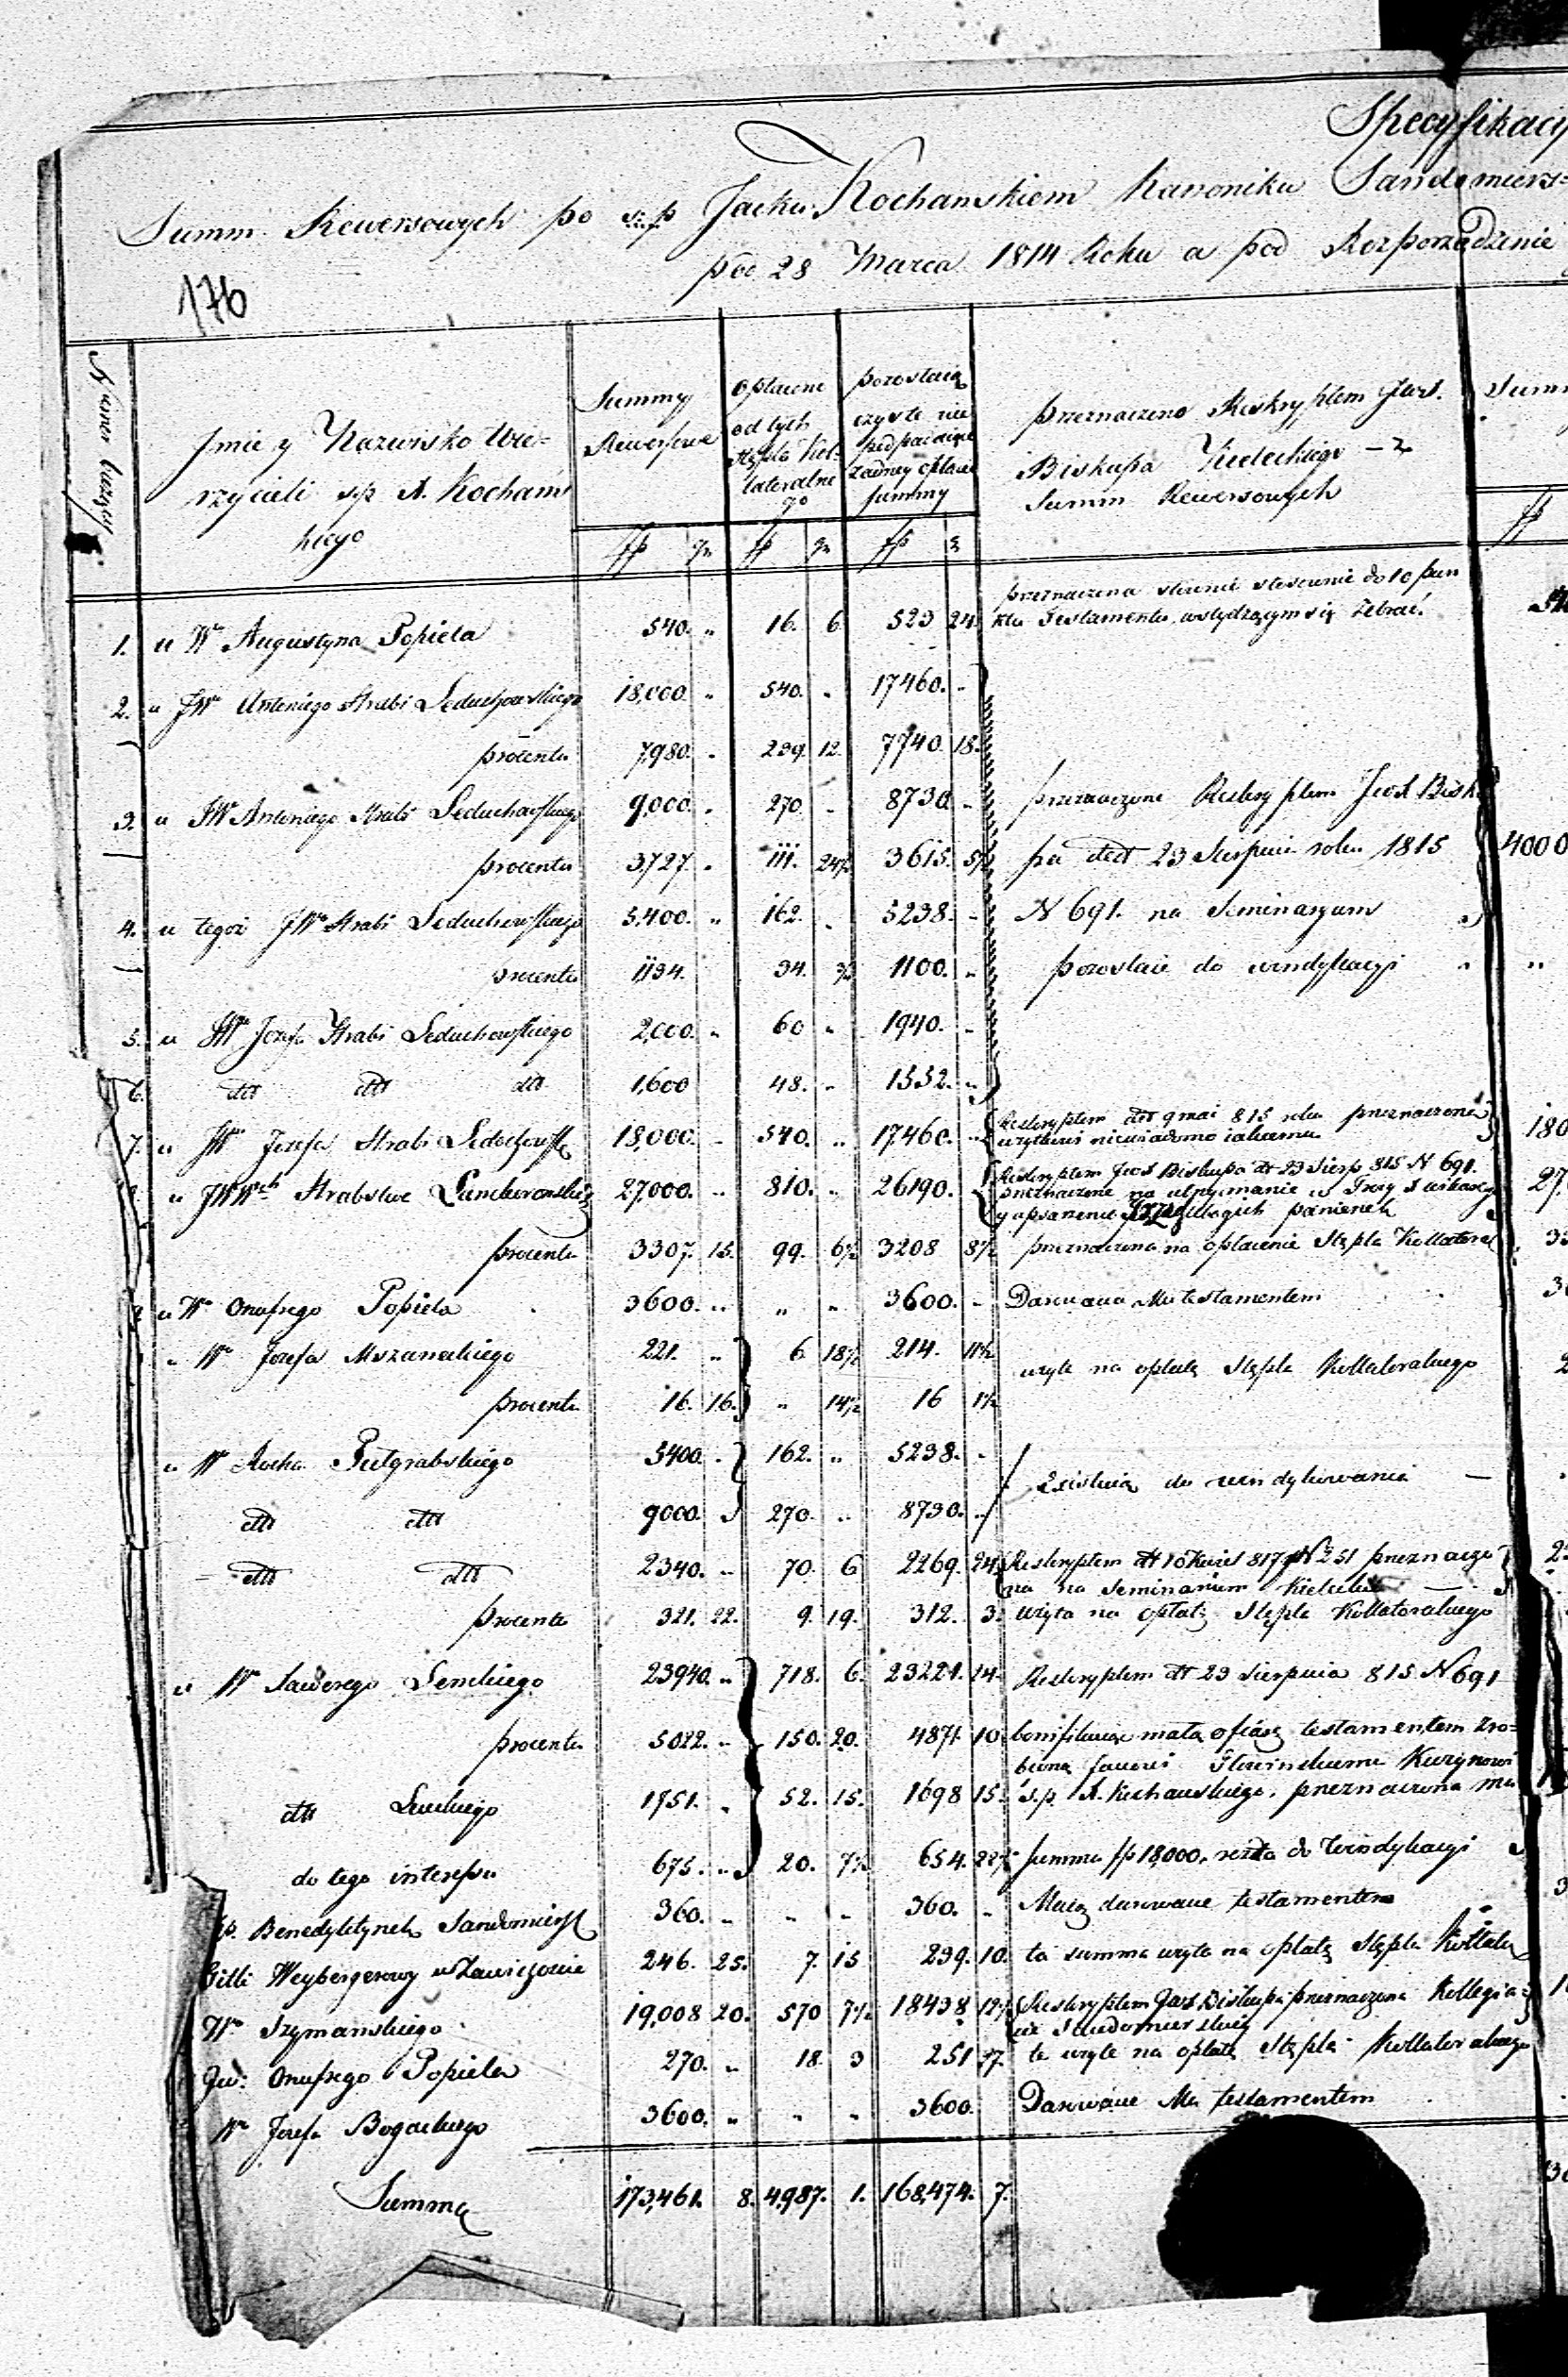 Specyfikacy
Summ Rewersowych po ś.p Jacku Kochanskiem Kanoniku Sandomiers=
pod 28 Marca 1814 Roku a pod Rozporządzenie
176
Numer bieżący
Jmie y Nazwisko Wie-
rzycieli śp X. Kochańs
kiego
Summy
Rewersowe
Opłacone
od tych
Stępla Kol-
lateralne
go
pozostaią
czyste nie
podpadaiące
żadney opłacie
summy
przeznaczono Reskryptem Jłws.
Biskupa Kieleckiego – z
Summ Rewersowych
Sum
fp gr fp gr fp g fp
1. u W° Augustyna Popiela 540. „ 16. 6 523 24.
przeznaczona stosownie do 10 pun
ktu Testamentu wstydzącym się żebrać.
2. u JW° Antoniego Hrabi Leduchowskiego 18,000. „ 540. „ 17460. „
procentu 7,980. „ 239. 12. 7740. 18.
3. u JW° Antoniego Hrabi Leduchowskiego 9,000. „ 270. „ 8730. „
przeznaczone Reskryptem Jwo Bisku
procentu 3,727. „ 111. 24½ 3615. 5½ pa dtt 23 Sierpnia roku 1815 4000
4. u tegoż JW° Hrabi Leduchowskiego 5,400. „ 162. „ 5238. „ N 691. na Seminaryum
procentu 1134. 34. 1100. „ pozostaie do windykacyi „
5. u JW° Jozefa Hrabi Leduchowskiego 2,000. „ 60 „ 1940. „
6. dtt dtt dtt 1,600 48. „ 1552. „
7. u JW° Jozefa Hrabi Ledochowsk 18,000. „ 540. „ 17460. „
Reskryptem dtt 9 mai 815 roku przeznaczone
użytkowi niewiadomo iakiemu 180
8. u JWW^ch Hrabstwa Lanckoronskich 27,000. „ 810. „ 26190. „
Reskryptem Jwo Biskupa dtt 23 Sierp 815 N 691.
przeznaczone na utrzymanie
ubogich panienek 27
procentu 3307. 15. 99. 6½ 3208 8½ przeznaczona na opłacenie Stępla Kollateral 33
9. u W° Onufrego Popiela 3600. „ „ „ 3600. „ Darowana Mu testamentem 36
„ W° Jozefa Mszaneckiego 221. „ 6 18½ 214. 11½
użyte na opłatę Stępla Kollateralnego 2
procentu 16. 16. „ 14½ 16 1½
u W° Rocha Putgrabskiego 5400. „ 162. „ 5238. „
Zostaią do windykowania —
dtt dtt 9000. „ 270. „ 8730. „
dtt dtt 2340. „ 70. 6 2269. 24.
Reskryptem dtt 10 817 N 251 przeznaczo
na na Seminarium Kieleckie —
procentu 321. 22. 9. 19. 312. 3. użyta na opłatę Stępla Kollateralnego
u W° Lenckiego 23940. „ 718. 6. 23221. 14. Reskryptem dtt 23 Sierpnia 815 N 691
procentu 5022. „ 150. 20. 4871. 10. małą testamentem zro-
bioną Kuzynowi
dtt Lenckiego 1751. „ 52. 15. 1698 15. ś.p. X. Kochanskiego, przeznaczona mu
do tego interessu 675. „ 20. 7½ 654. 22½ summa fp 18,000, reszta do windykacyi
Pp. Benedyktynek Sandomiersk 360. „ „ „ 360. „ Maią darowane testamentem
Gitli Weybergerowy w Zawichoscie 246. 25. 7. 15 239. 10. ta summa użyta na opłatę Stępla Kollate
W° Szymanskiego 19,008 20. 570 7½ 18438 12½
Reskryptem Jwo Biskupa przeznaczona Kollegia-
cie Sandomierskiey
Jw: Onufrego Popiela 270. „ 18. 3 251 27. te użyte na opłatę Stępla Kollateralnego
W° Jozefa Bogackiego 3600. „ „ „ 3600. Darowane Mu testamentem
Summa 173,461. 8. 4,987. 1. 168,474. 7.